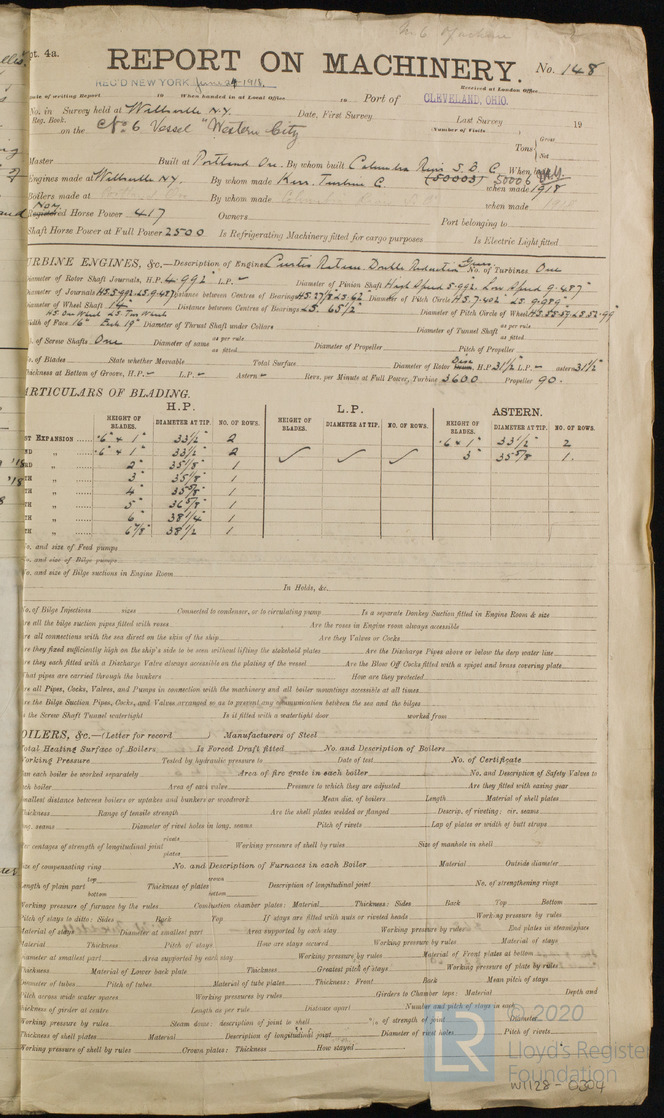 pt. 4a.
REPORT ON MACHINERY.
No. 148
REC'D NEW YORK June 24 1918
Received at London Office
Date of writing Report 19 When handed in at Local Office 19 Port of CLEVELAND, OHIO.
No. in Survey held at Wellsville N.Y. Date, First Survey Last Survey 19
Reg. Book. (Number of Visits
on the No 6 Vessel "Western City" Tons Gross Net
Master Built at Portland Ore. By whom built Columbia River S. B. C. When built
Engines made at Wellsville N.Y. By whom made Kerr Turbine C. (50003) 50006 when made 1918
Boilers made at By whom made when made 1918
Registered Horse Power 417 Owners Port belonging to
Shaft Horse Power at Full Power 2500 Is Refrigerating Machinery fitted for cargo purposes Is Electric Light fitted
TURBINE ENGINES, &c.—Description of Engines Curtis Rateau Double Reduction Gear. No. of Turbines One
Diameter of Rotor Shaft Journals, H.P. 4.992" L.P. — Diameter of Pinion Shaft High Speed 5.992 Low Speed 9.487"
Diameter of Journals HS 5.992 LS 9.487 Distance between Centres of Bearings Diameter of Pitch Circle HS 7.402" LS 9.989"
Diameter of Wheel Shaft 14" Distance between Centres of Bearings LS. 65 1/2" Diameter of Pitch Circle of Wheel
HS One Wheel LS. Two Wheels
Width of Face 16" Each 19" Diameter of Thrust Shaft under Collars Diameter of Tunnel Shaft as per rule as fitted
No. of Screw Shafts One Diameter of same as per rule as fitted Diameter of Propeller Pitch of Propeller
No. of Blades State whether Moveable Total Surface Diameter of Rotor Disc H.P. 31 1/2" L.P. — astern 31 1/2"
Thickness at Bottom of Groove, H.P. — L.P. — Astern — Revs. per Minute at Full Power, Turbine 3600 Propeller 90.
PARTICULARS OF BLADING.
H.P. L.P. ASTERN.
HEIGHT OF BLADES. DIAMETER AT TIP. NO. OF ROWS. HEIGHT OF BLADES. DIAMETER AT TIP. NO. OF ROWS. HEIGHT OF BLADES. DIAMETER AT TIP. NO. OF ROWS.
ST EXPANSION .6" & 1" 33 1/2" 2 .6 & 1" 33 1/2" 2
ND " .6" & 1" 33 1/2" 2 ✓ ✓ ✓ 3" 35 5/8" 1.
RD " 2" 35 1/8" 1
TH " 3" 35 1/8" 1
TH " 4" 35 5/8" 1
TH " 5" 36 5/8" 1
TH " 6" 38 1/4" 1
TH " 6 7/8" 38 1/2 1
No. and size of Feed pumps
No. and size of Bilge pumps
No. and size of Bilge suctions in Engine Room
In Holds, &c.
No. of Bilge Injections sizes Connected to condenser, or to circulating pump Is a separate Donkey Suction fitted in Engine Room & size
Are all the bilge suction pipes fitted with roses Are the roses in Engine room always accessible
Are all connections with the sea direct on the skin of the ship Are they Valves or Cocks
Are they fixed sufficiently high on the ship's side to be seen without lifting the stokehold plates Are the Discharge Pipes above or below the deep water line
Are they each fitted with a Discharge Valve always accessible on the plating of the vessel Are the Blow Off Cocks fitted with a spigot and brass covering plate
What pipes are carried through the bunkers How are they protected
Are all Pipes, Cocks, Valves, and Pumps in connection with the machinery and all boiler mountings accessible at all times
Are the Bilge Suction Pipes, Cocks, and Valves arranged so as to prevent any communication between the sea and the bilges
Is the Screw Shaft Tunnel watertight Is it fitted with a watertight door worked from
BOILERS, &c.—(Letter for record ) Manufacturers of Steel
Total Heating Surface of Boilers Is Forced Draft fitted No. and Description of Boilers
Working Pressure Tested by hydraulic pressure to Date of test No. of Certificate
Can each boiler be worked separately Area of fire grate in each boiler No. and Description of Safety Valves to
each boiler Area of each valve Pressure to which they are adjusted Are they fitted with easing gear
Smallest distance between boilers or uptakes and bunkers or woodwork Mean dia. of boilers Length Material of shell plates
Thickness Range of tensile strength Are the shell plates welded or flanged Descrip. of riveting: cir. seams
long. seams Diameter of rivet holes in long. seams Pitch of rivets Lap of plates or width of butt straps
Per centages of strength of longitudinal joint rivets plates Working pressure of shell by rules Size of manhole in shell
Size of compensating ring No. and Description of Furnaces in each Boiler Material Outside diameter
Length of plain part top bottom Thickness of plates crown bottom Description of longitudinal joint No. of strengthening rings
Working pressure of furnace by the rules Combustion chamber plates: Material Thickness: Sides Back Top Bottom
Pitch of stays to ditto: Sides Back Top If stays are fitted with nuts or riveted heads Working pressure by rules
Material of stays Diameter at smallest part Area supported by each stay Working pressure by rules End plates in steam space
Material Thickness Pitch of stays How are stays secured Working pressure by rules Material of stays
Diameter at smallest part Area supported by each stay Working pressure by rules Material of Front plates at bottom
Thickness Material of Lower back plate Thickness Greatest pitch of stays Working pressure of plate by rules
Diameter of tubes Pitch of tubes Material of tube plates Thickness: Front Back Mean pitch of stays
Pitch across wide water spaces Working pressures by rules Girders to Chamber tops: Material Depth and
thickness of girder at centre Length as per rule Distance apart Number and pitch of stays in each
Working pressure by rules Steam dome: description of joint to shell % of strength of joint Diameter
Thickness of shell plates Material Description of longitudinal joint Diameter of rivet holes Pitch of rivets
Working pressure of shell by rules Crown plates: Thickness How stayed
LR © 2020
Lloyd's Register
Foundation
W1128-0304